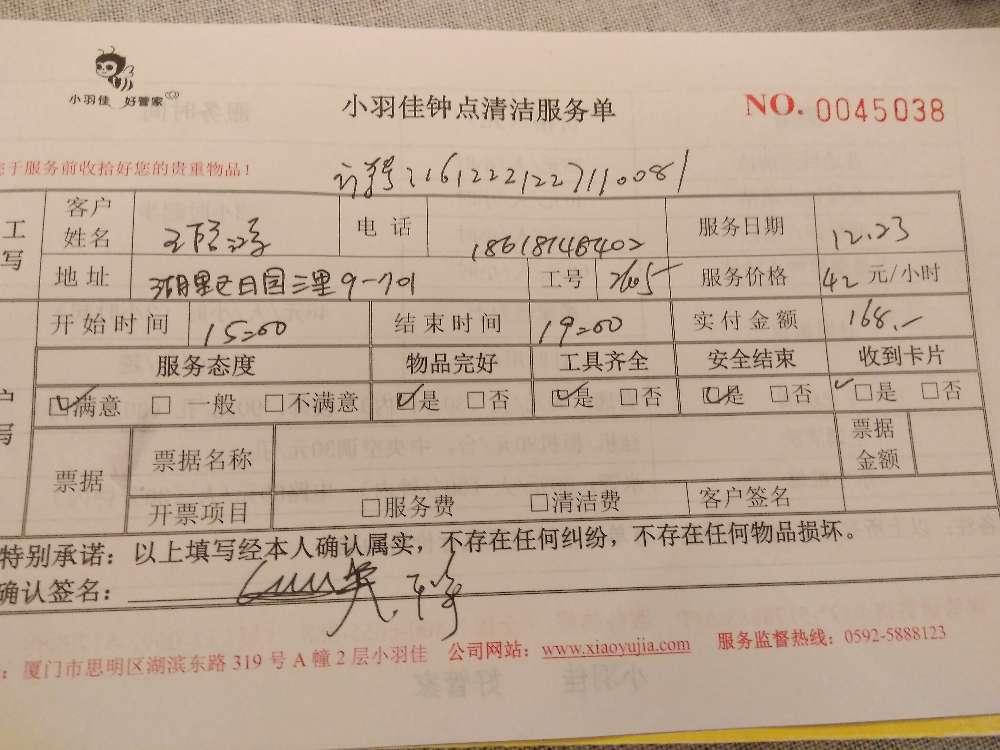 小羽佳 好管家
小羽佳钟点清洁服务单
NO. 0045038
于服务前收拾好您的贵重物品!
订单号:16122212271100081
工 写 客户姓名 电话 18618148402 服务日期 12.23
地址 湖里区日园三里9-701 工号 2605 服务价格 42 元/小时
开始时间 15=00 结束时间 19=00 实付金额 168.-
服务态度 物品完好 工具齐全 安全结束 收到卡片
户 写 ☑满意 □一般 □不满意 ☑是 □否 ☑是 □否 ☑是 □否 ☑是 □否
票据 票据名称 票据金额
开票项目 □服务费 □清洁费 客户签名
特别承诺:以上填写经本人确认属实,不存在任何纠纷,不存在任何物品损坏。
确认签名:
:厦门市思明区湖滨东路 319 号 A 幢 2 层小羽佳 公司网站:www.xiaoyujia.com 服务监督热线:0592-5888123